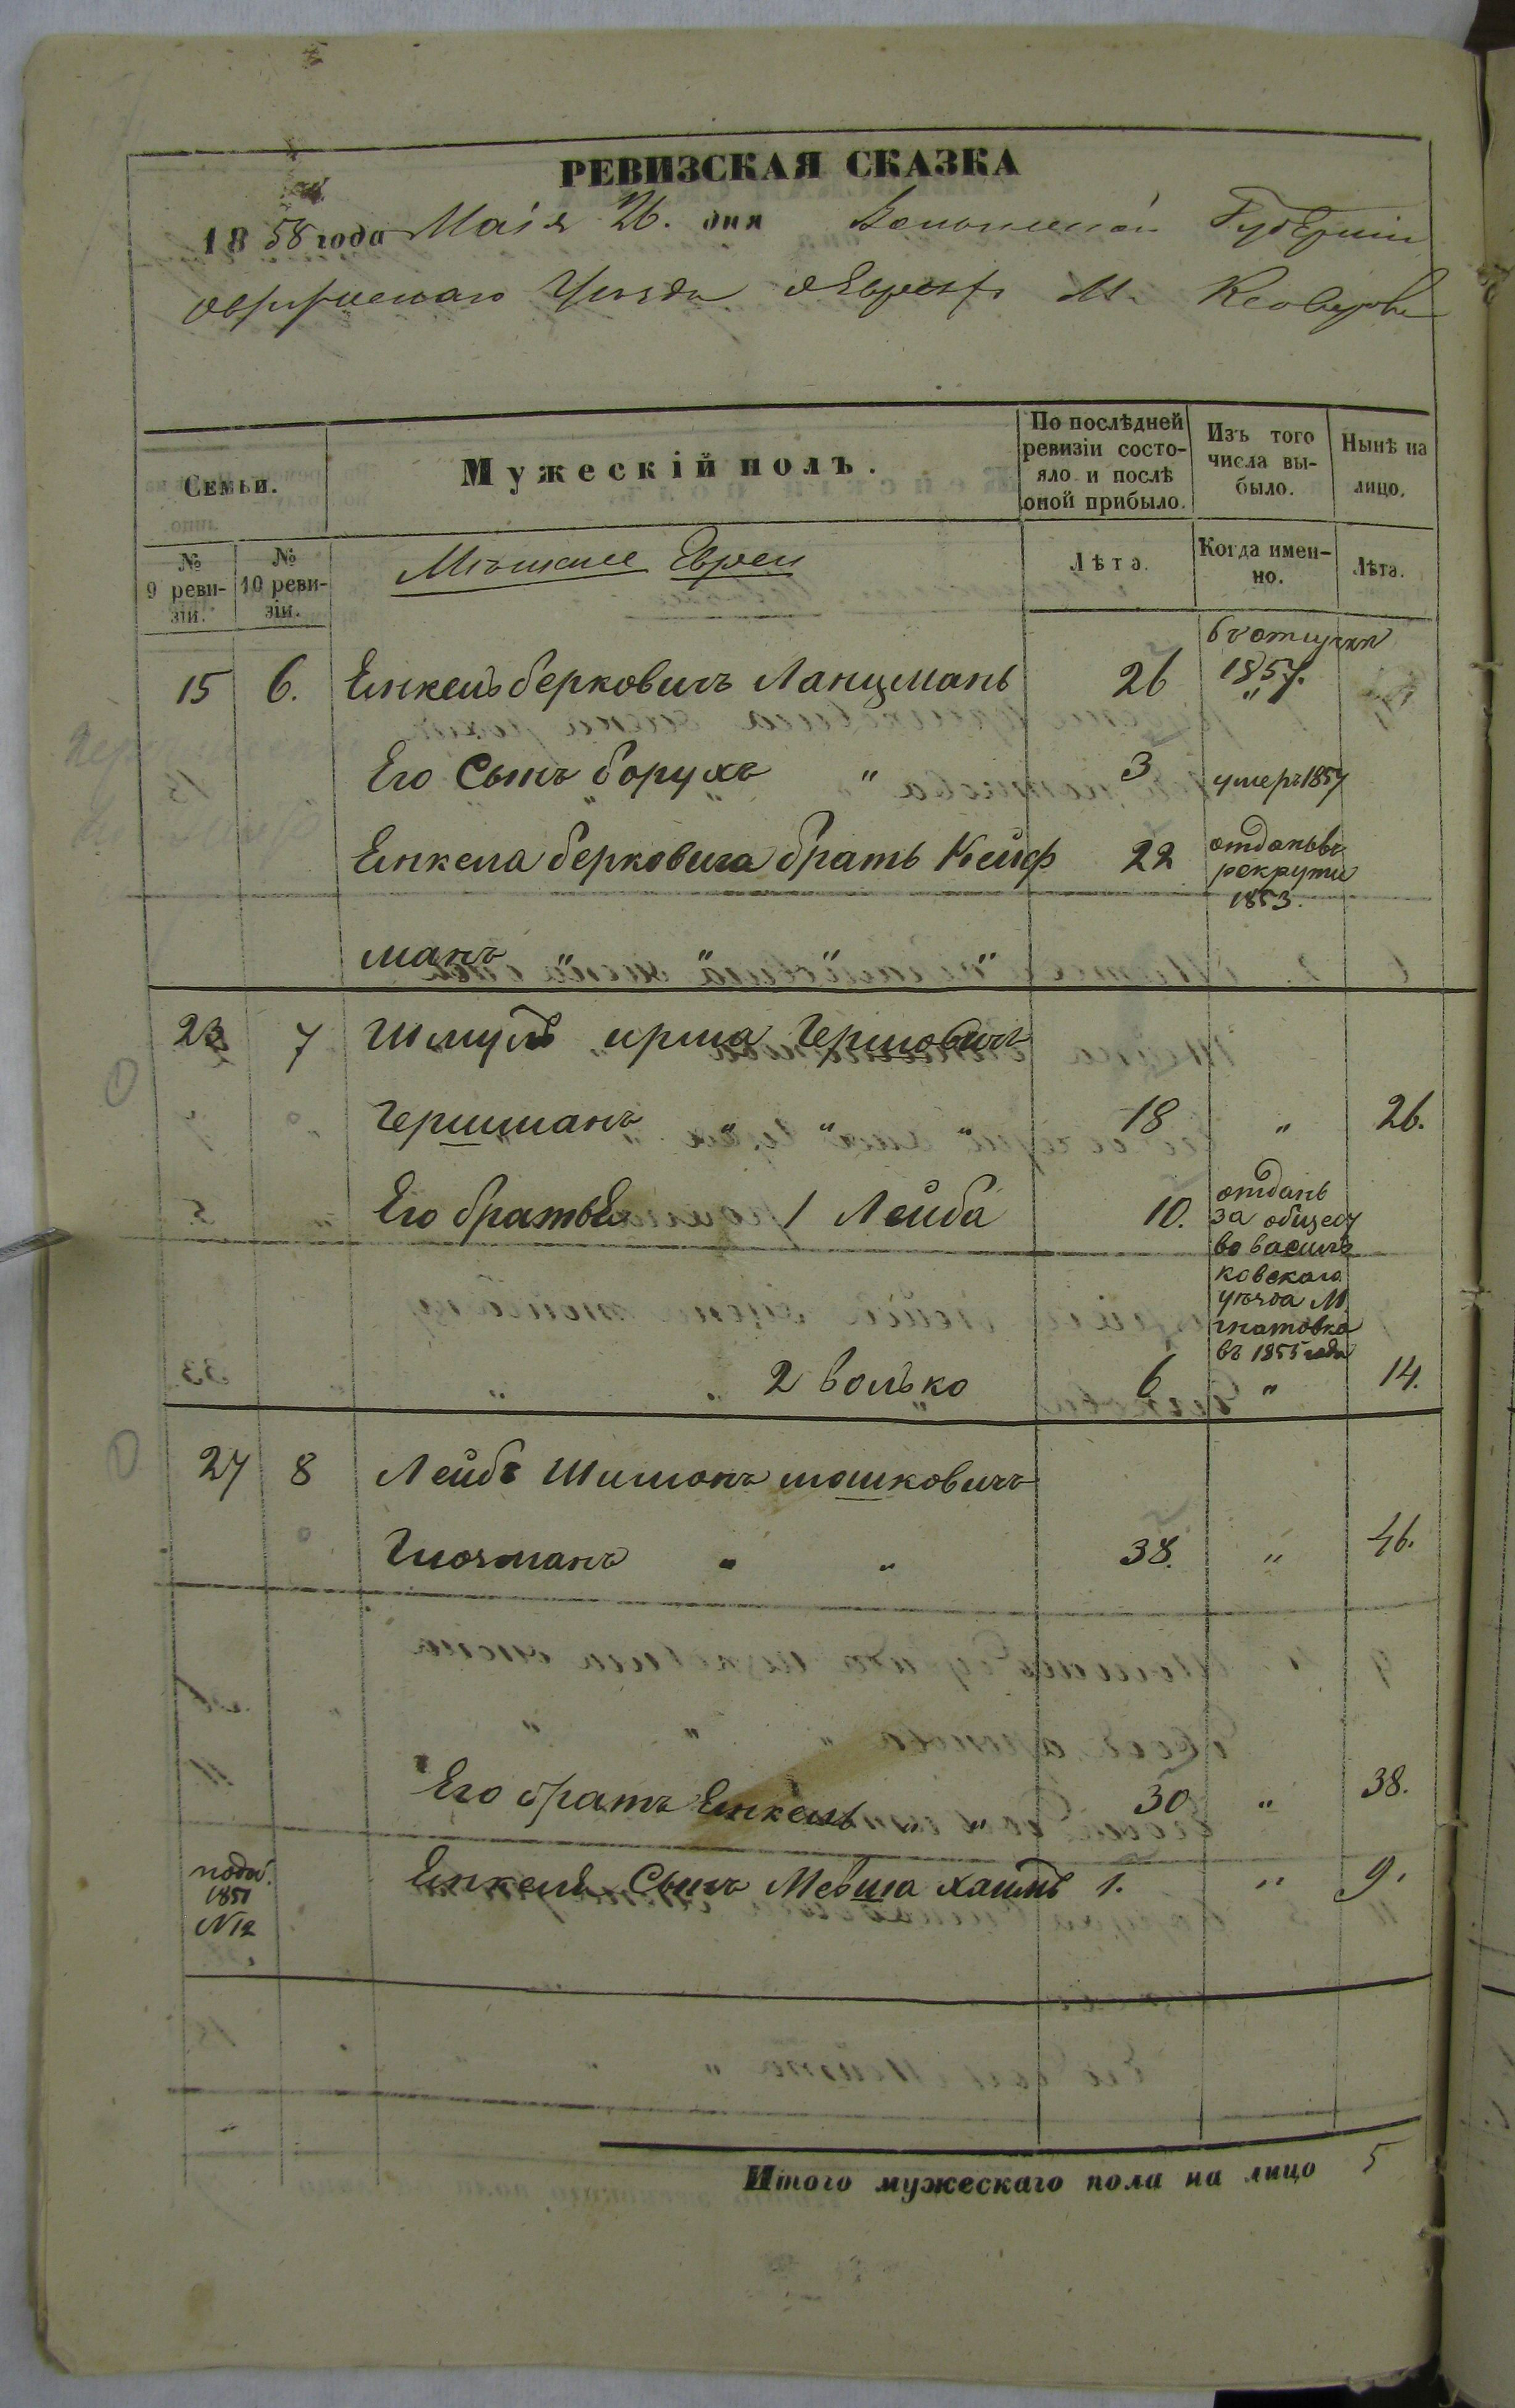 РЕВИЗСКАЯ СКАЗКА
1858 года Маія 26. дня Волынской Губерніи
Овручскаго Уезда о Евреяхъ М.
Семьи.
Мужескій полъ.
По послѣдней ревизіи состо-
яло и послѣ
оной прибыло.
Изъ того
числа вы-
было.
Нынѣ на
лицо.
№
9 реви-
зіи.
№
10 реви-
зіи.
Мѣщане Евреи
Лѣта.
Когда имен-
но.
Лѣта.
15 6. Енкель Берковичъ Ланцманъ 26 въ отлучкѣ
1857.
Его Сынъ Борухъ " 3 умеръ 1857
Енкеля Берковича братъ Кейф 22 отданъ въ
рекруты
1853.
манъ " " " "
23 7 Шмуль ирша Гершовичъ
Гершманъ " " 18 " 26.
Его братья 1 Лейба 10. отданъ
за общест
во Василь
ковскаго
уѣзда М.
гнатовка
въ 1855 года
2 Волько 6 " 14.
27 8 Лейба Шимонъ мошковичъ
Глозманъ " " 38. " 46.
Его братъ Енкель " " 30 " 38.
1851
№12
Енкеля Сынъ Мовша хаимъ 1. " 9.
Итого мужескаго пола на лицо 5